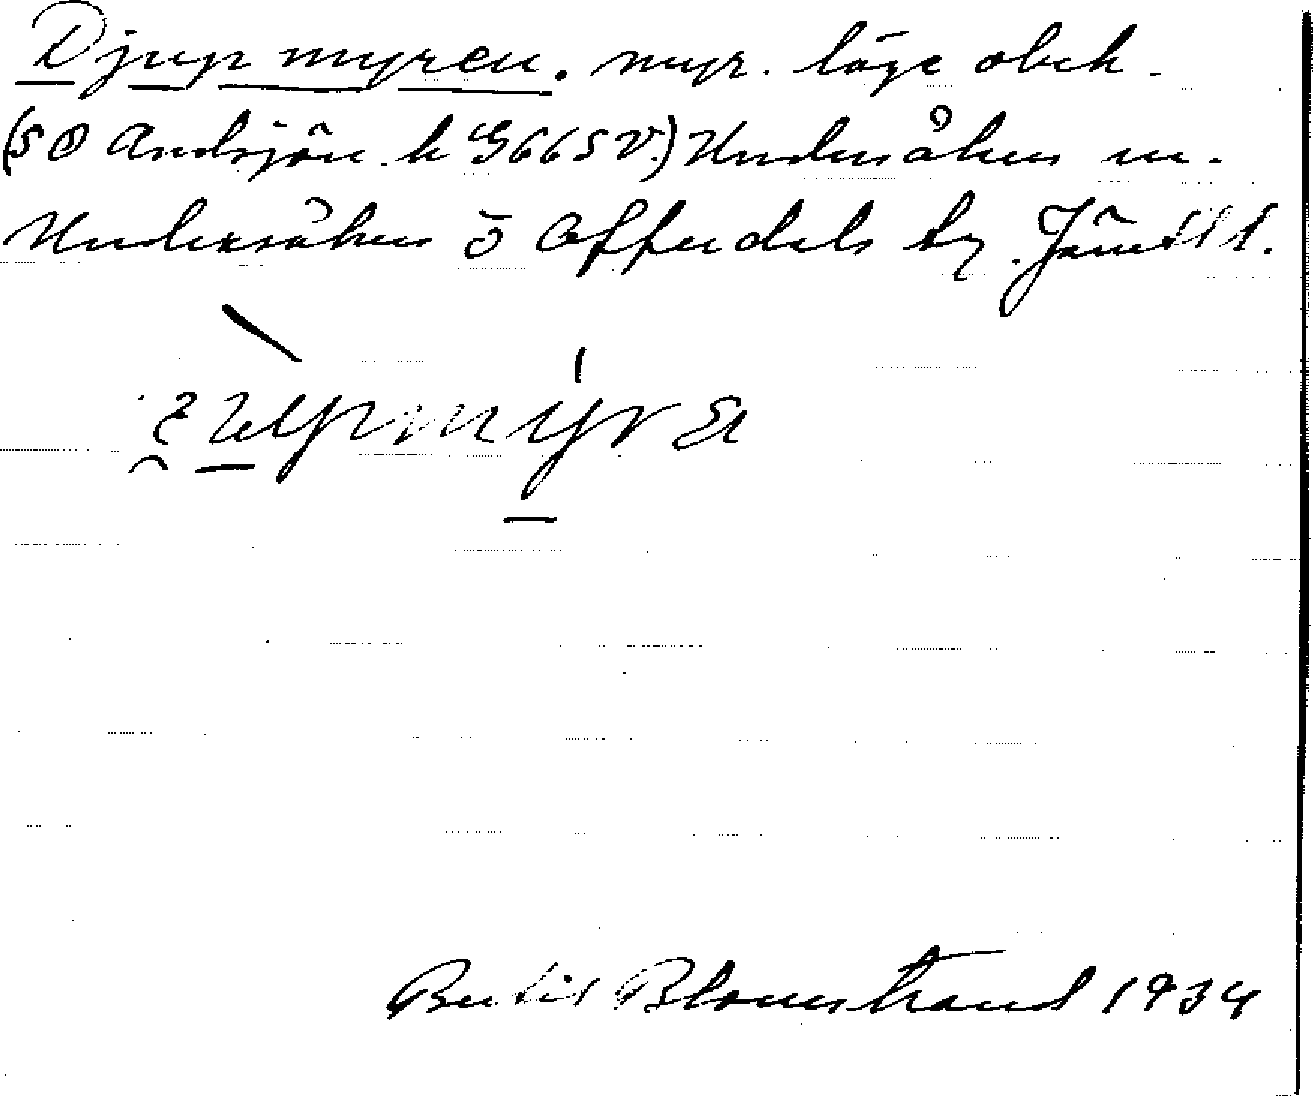 Djupmyren. myr. läge obek.
(SO Andsjön. k G665V.) Undersåkers sn.
Undersåkers o Offerdals tg. Jämtl l.
Bertil Blomstrand 1934